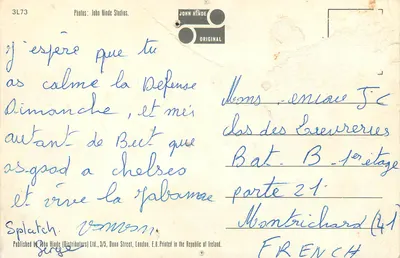 3L73
Photos: John Hinde Studios.
JOHN HINDE
ORIGINAL
j'espère que tu
as calmé la Défense
Dimanche, et mis
autant de But que
osgood a chelsea
et vive la
Splatch.
Serge
Mms
clos des
Bat. B. 1er étage
porte 21.
Montrichard (41)
FRENCH
Published by John Hinde (Distributors) Ltd., 3/5, Dunn Street, London, E.8. Printed in the Republic of Ireland.